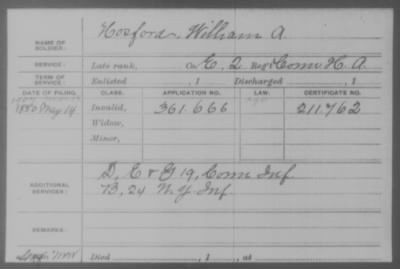 NAME OF SOLDIER: Hosford, William A.
SERVICE: Late rank, Co. E, 2 Reg't Conn H. A.
TERM OF SERVICE: Enlisted , 1 Discharged , 1
DATE OF FILING. CLASS. APPLICATION NO. LAW. CERTIFICATE NO.
1880 May 14 Invalid, 361 666 211762
Widow,
Minor,
ADDITIONAL SERVICES: D, C & G 19, Conn Inf
B, 24 N.Y. Inf
REMARKS:
Died , 1 , at